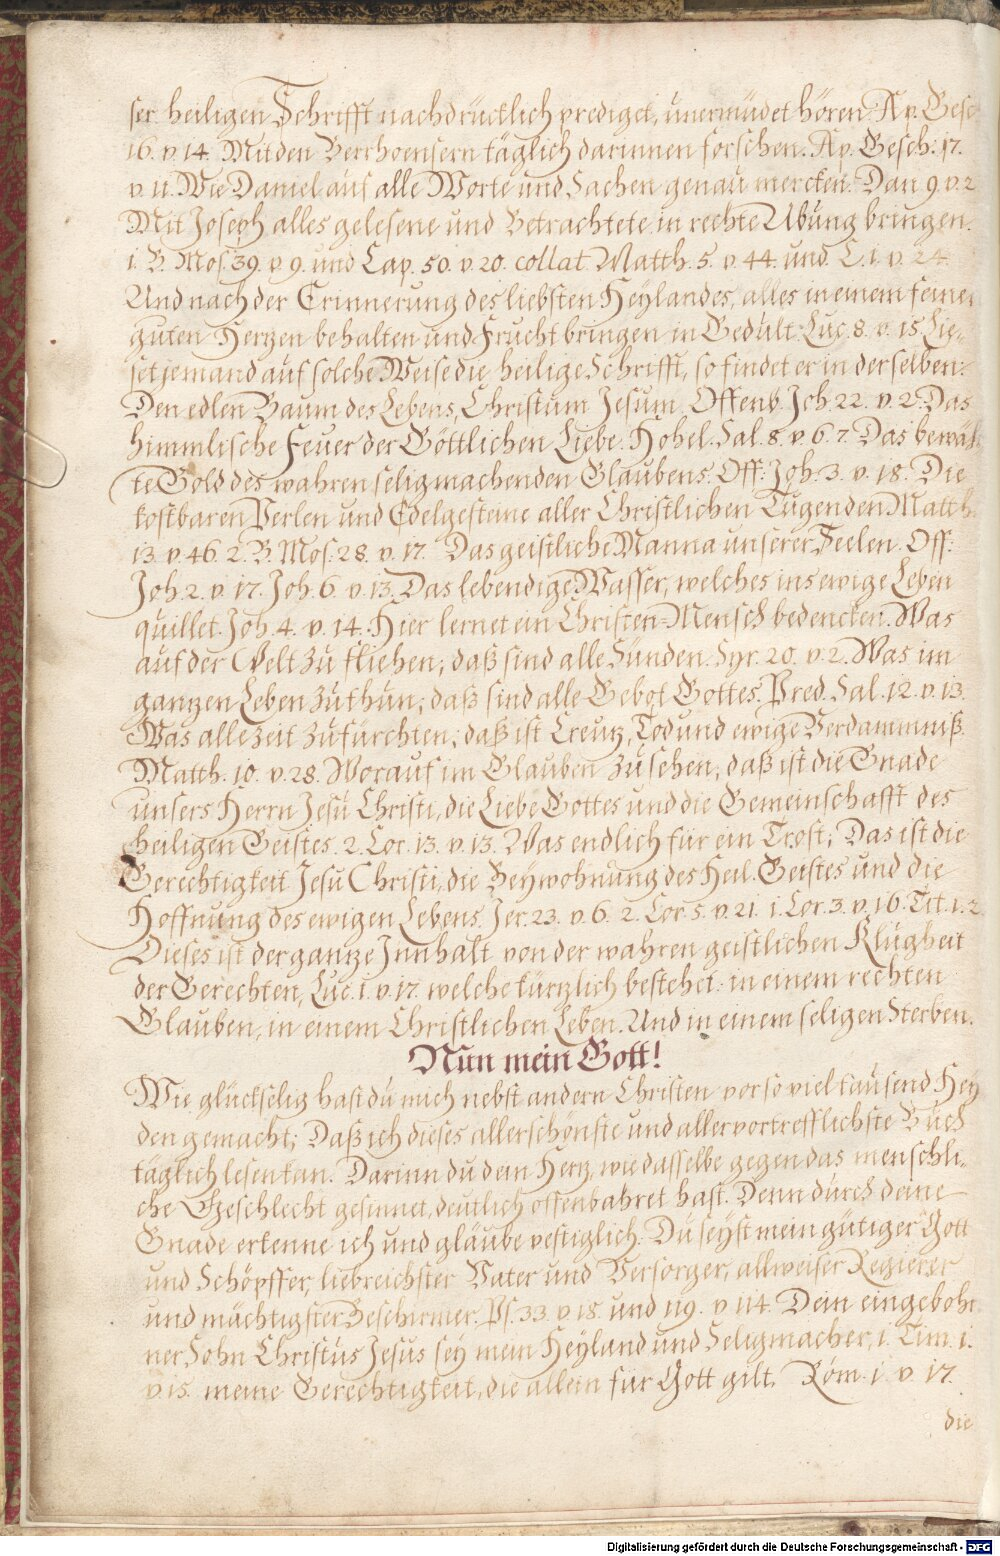 ser heiligen Schrifft nachdrücklich prediget, unermüdet hören. Ap. Gesch
16. v. 14. Mit den Berrhoensern täglich darinnen forschen. Ap. Gesch: 17.
v. 11. Wie Daniel auf alle Worte und Sachen genau mercken. Dan 9. v. 2
Mit Joseph alles gelesene und Betrachtete in rechte Übung bringen.
1. B. Mos. 39. v. 9. und Cap. 50. v. 20. collat. Matth. 5. v. 44. und C. 1. v. 24.
Und nach der Erinnerung des liebsten Heylandes, alles in einem feinen
guten Hertzen behalten und Frucht bringen in Gedult. Luc. 8. v. 15. Lie-
set jemand auf solche Weise die heilige Schrifft, so findet er in derselben:
Den edlen Baum des Lebens, Christum Jesum. Offenb. Joh. 22. v. 2. Das
himmlische Feuer der Göttlichen Liebe. Hohel. Sal. 8. v. 6. 7. Das bewähr
te Gold des wahren seligmachenden Glaubens. Off: Joh. 3. v. 18. Die
kostbaren Perlen und Edelgesteine aller Christlichen Tugenden Matth.
13. v. 46. 2. B. Mos. 28. v. 17. Das geistliche Manna unserer Seelen. Off:
Joh. 2. v. 17. Joh. 6. v. 13. Das lebendige Wasser, welches ins ewige Leben
quillet. Joh. 4. v. 14. Hier lernet ein Christen-Mensch bedencken. Was
auf der Welt zu fliehen; daß sind alle Sünden. Syr. 20. v. 2. Was im
gantzen Leben zu thun; daß sind alle Gebot Gottes. Pred. Sal. 12. v. 13.
Was alle Zeit zu fürchten; daß ist Creutz, Tod und ewige Verdammniß.
Matth. 10. v. 28. Worauf im Glauben zu sehen; daß ist die Gnade
unsers Herrn Jesu Christi, die Liebe Gottes und die Gemeinschafft des
heiligen Geistes. 2. Cor. 13. v. 13. Was endlich für ein Trost; Das ist die
Gerechtigkeit Jesu Christi, die Beywohnung des Heil. Geistes und die
Hoffnung des ewigen Lebens. Jer. 23. v. 6. 2. Cor. 5. v. 21. 1. Cor. 3. v. 16. Tit. 1. 2
Dieses ist der gantze Innhalt von der wahren geistlichen Klugheit
der Gerechten, Luc. 1. v. 17. welche kürtzlich bestehet: in einem rechten
Glauben, in einem Christlichen Leben. Und in einem seligen Sterben.
Nun mein Gott!
Wie glückselig hast du mich nebst andern Christen vor so viel tausend Hey
den gemacht; Daß ich dieses allerschönste und allervortrefflichste Buch
täglich lesen kan. Darinn du dein Hertz, wie dasselbe gegen das menschli-
che Geschlecht gesinnet, deutlich offenbahret hast. Denn durch deine
Gnade erkenne ich und gläube vestiglich: Du seyst mein gütiger Gott
und Schöpffer, liebreichster Vater und Versorger, allweiser Regierer
und mächtigster Beschirmer. Ps. 33. v. 18. und 119. v. 114. Dein eingebohr
ner Sohn Christus Jesus sey mein Heyland und Seligmacher, 1. Tim. 1.
v. 15. meine Gerechtigkeit, die allein für Gott gilt, Röm. 1. v. 17.
die
Digitalisierung gefördert durch die Deutsche Forschungsgemeinschaft - DFG